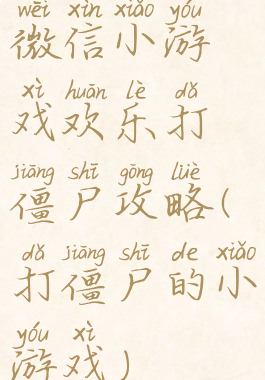 wēi xìn xiǎo yóu
微信小游
xì huān lè dǎ
戏欢乐打
jiāng shī gōng lüè
僵尸攻略(
dǎ jiāng shī de xiǎo
打僵尸的小
yóu xì
游戏)